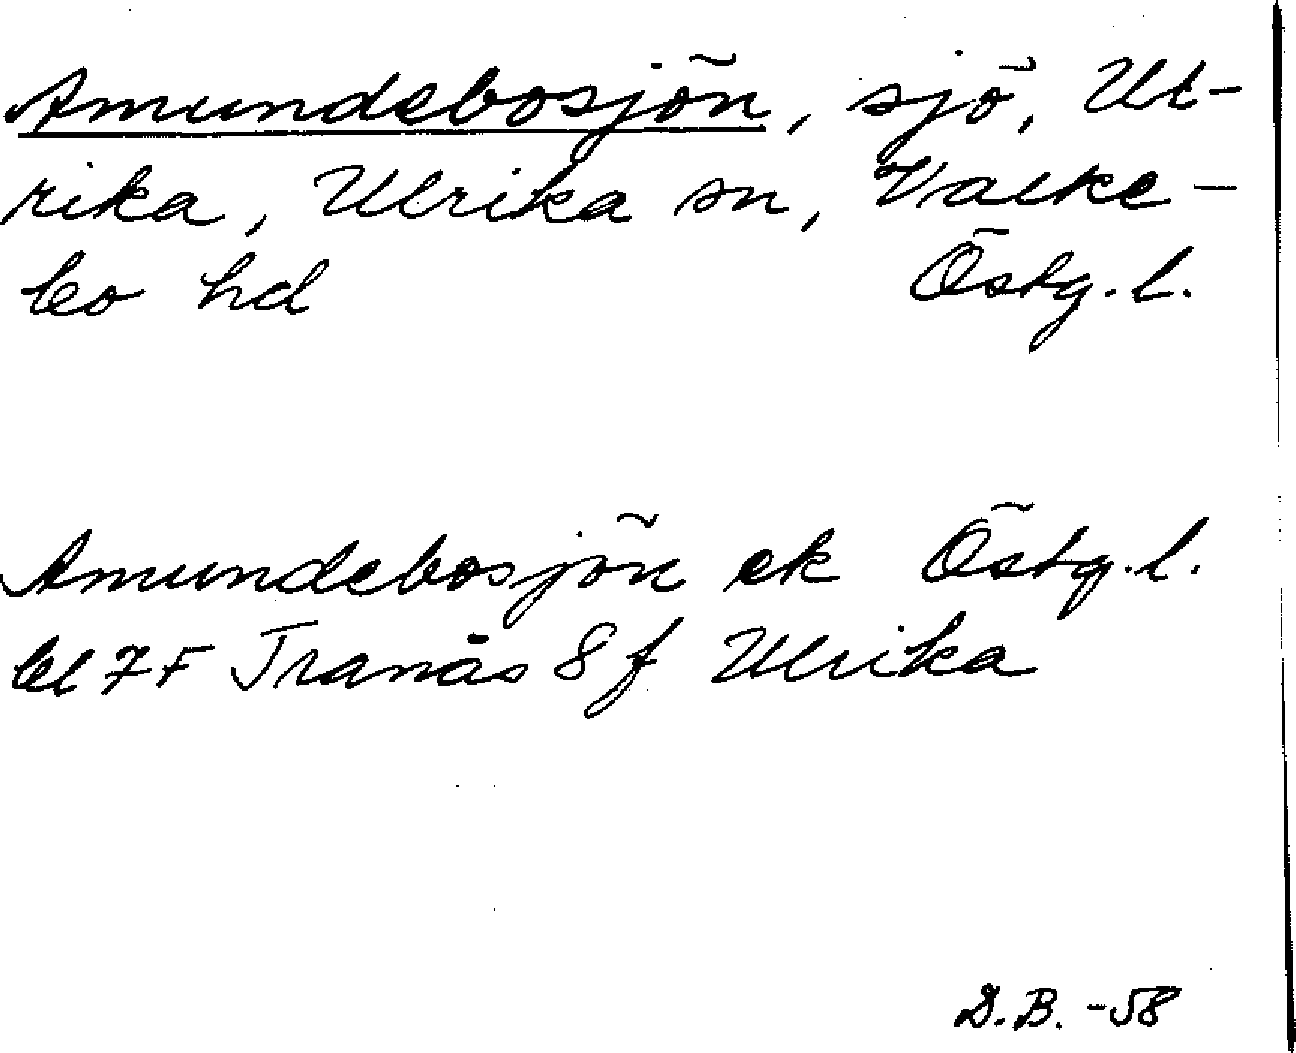 Amundebosjön, sjö, Ul-
rika, Ulrika sn, Valke-
bo hd Östg.l.
Amundebosjön ek Östg.l.
bl 7F Tranås 8f Ulrika
D.B. -58